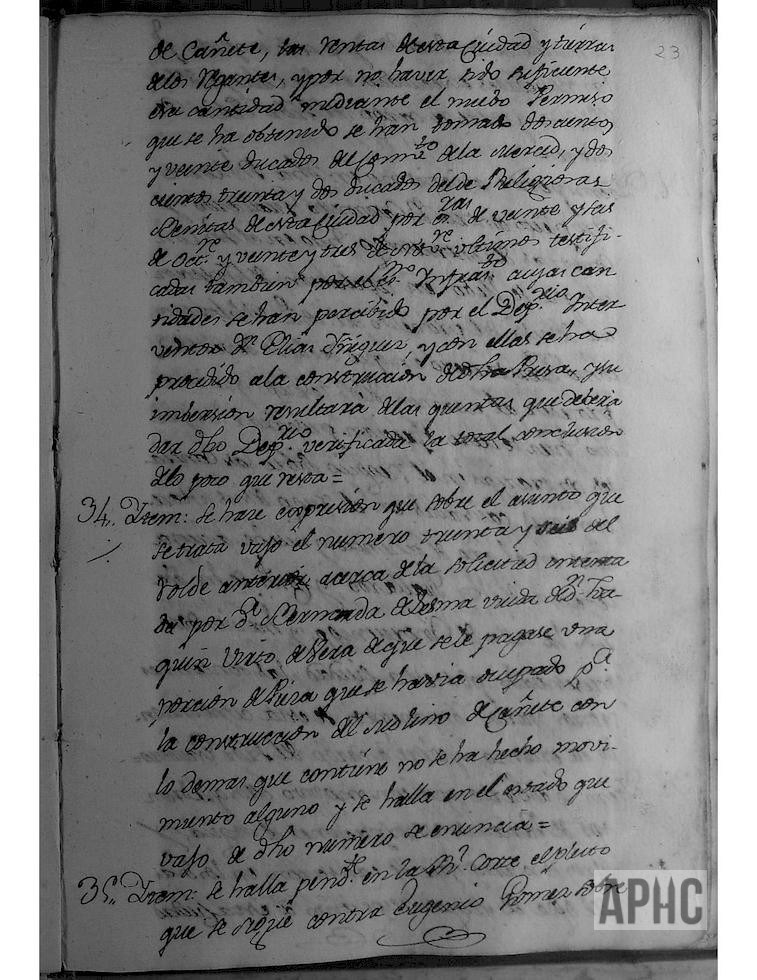 23
de Cañete, las rentas de esta Ciudad y tierras
de los Regantes, y por no haver sido suficiente
esa cantidad mediante el nuebo Permiso
que se ha obtenido se han tomado doscientos
y veinte ducados del Comto de la Merced, y dos
cientos treinta y dos ducados del de Religiosas
Benitas de esta Ciudad por esras de veinte y seis
de Octre y veinte y tres de últimos testifi-
cadas tambien por el esno Infrasto cuyas can
tidades se han percibido por el Deprio Inter
ventor Dn Elias Iñiguez, y con ellas se ha
procedido a la construccion de dha Presa, y su
imbersion resultará de las quentas que deberá
dar dho Deprio verificada la total conclusion
de lo poco que resta=
34. Ytem: se hace expresion que sobre el asunto que
se trata vajo el numero treinta y seis del
rolde anterior acerca de la solicitud intenta
da por Da Bernarda Ledesma viuda de Dn Joa-
quin Virto de Vera de que se le pagase una
porcion de Pieza que se havia ocupado pa
la construccion del Molino de Cañete con
lo demas que contiene no se ha hecho movi-
miento alguno y se halla en el estado que
vajo de dho numero se enuncia=
35. Ytem: se halla pendte en la Rl Corte el pleito
que se sigue contra Eugenio Gomez sobre
APHC